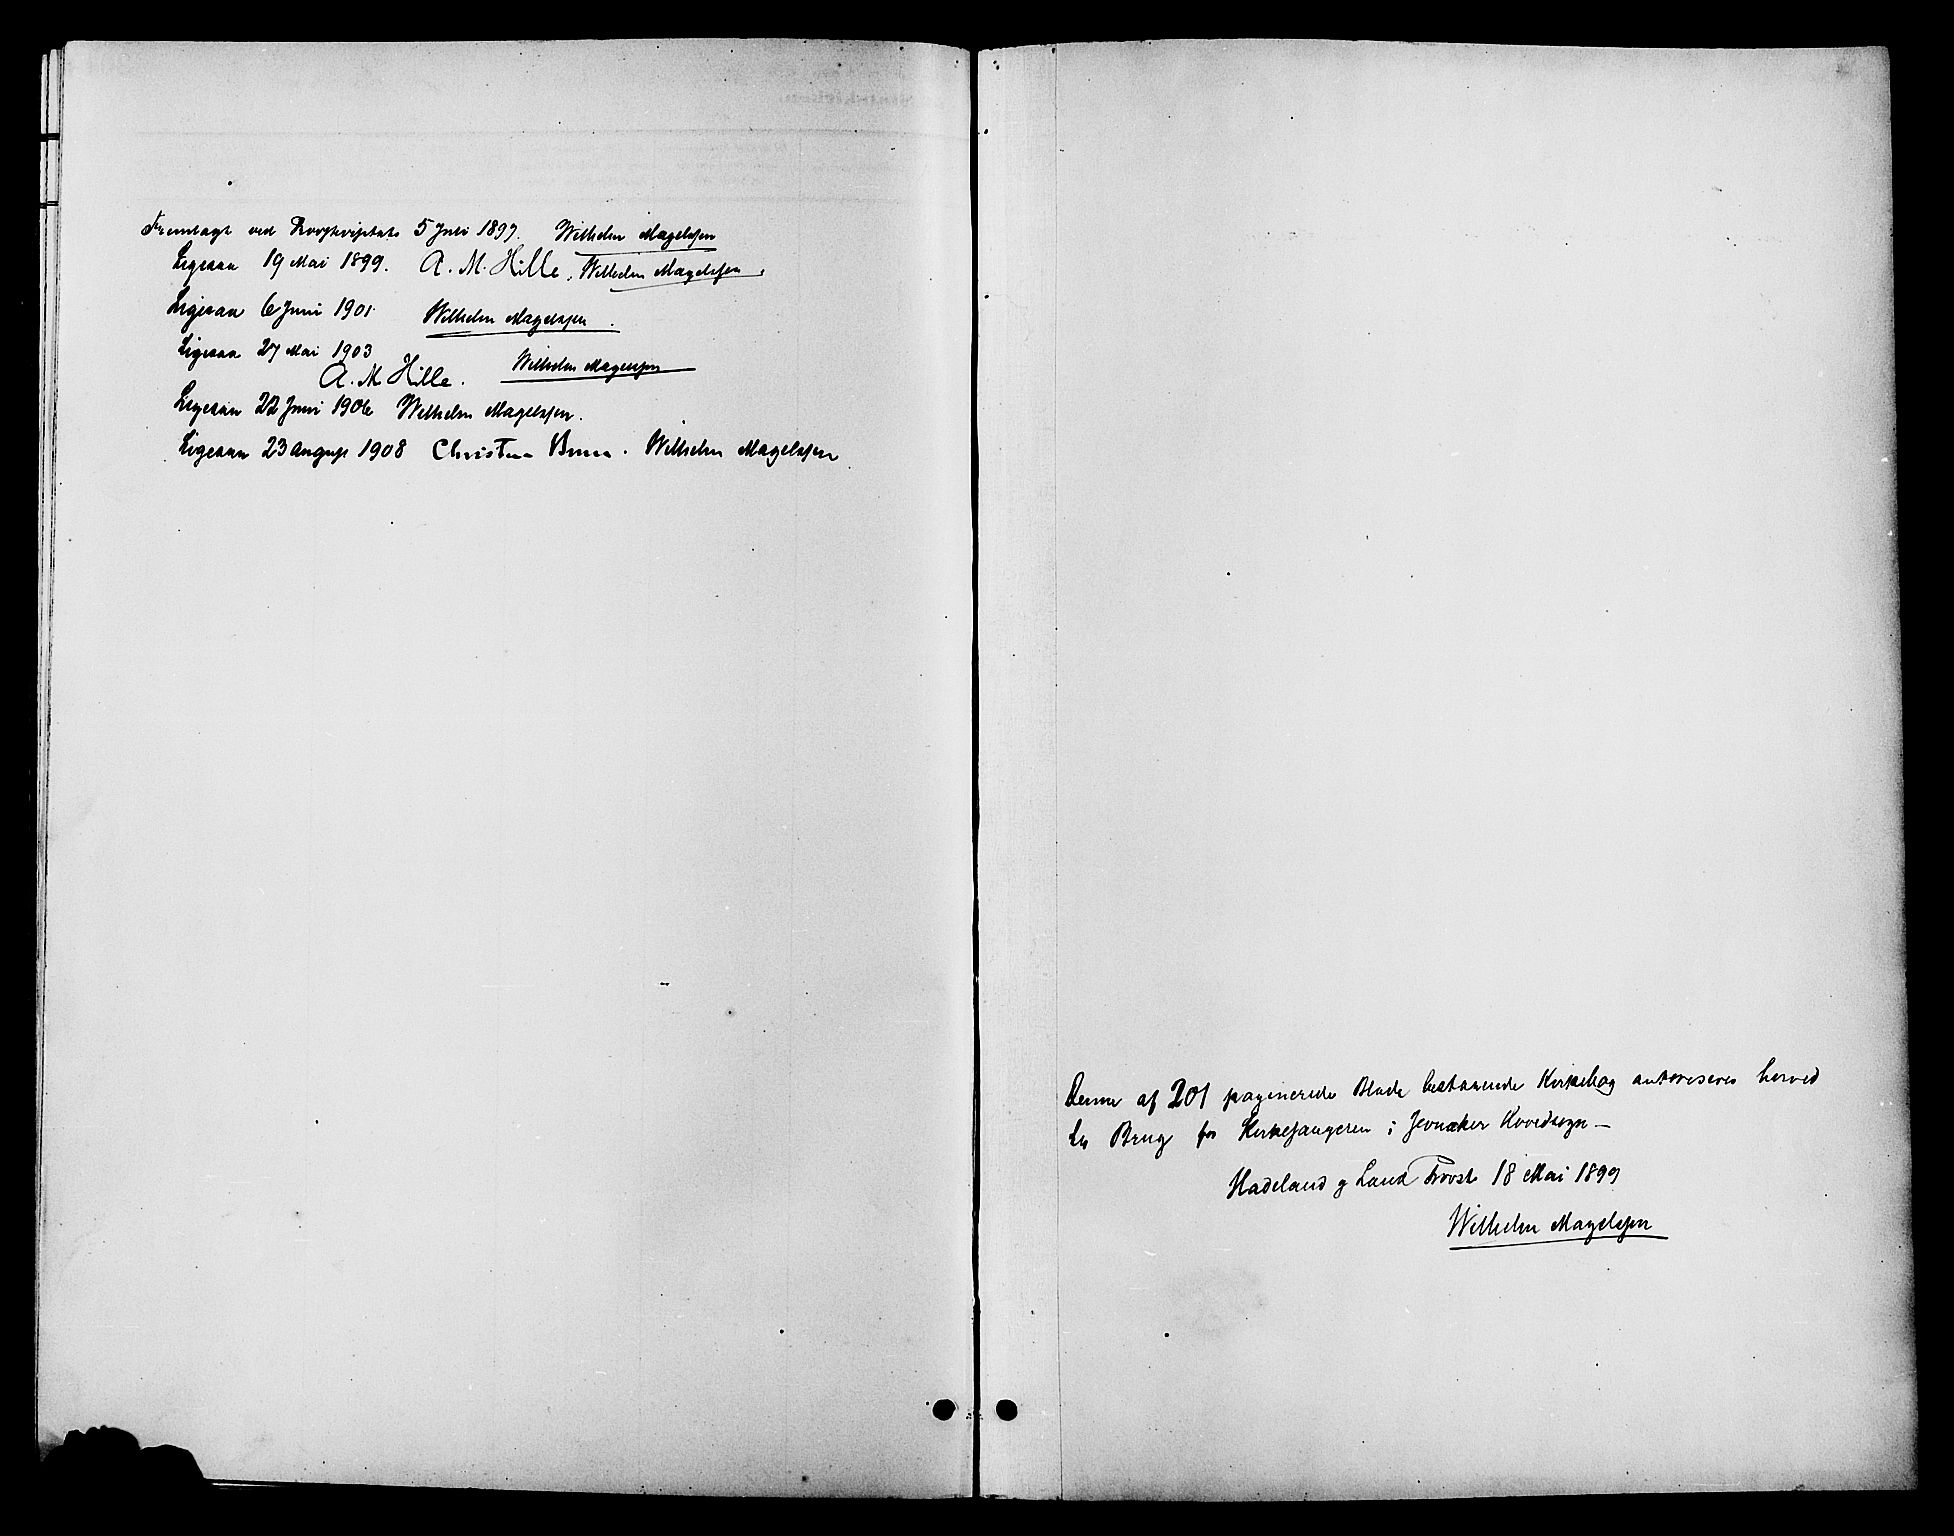 Fremlagt ved Provstevisitats 5 Juli 1897. Wilhelm Magelssen
Ligesaa 19 Mai 1899. A. M. Hille, Wilhelm Magelssen.
Ligesaa 6 Juni 1901. Wilhelm Magelssen.
Ligesaa 27 Mai 1903 Wilhelm Magelssen
A. M. Hille.
Ligesaa 22 Juni 1906 Wilhelm Magelssen.
Ligesaa 23 August 1908 Christen Brun. Wilhelm Magelssen
Denne af 201 paginerede Blade bestaaende Kirkebog autoriseres herved
til Brug for Kirkesangeren i Jevnaker Hovedsogn —
Hadeland og Land Provsti 18 Mai 1899
Wilhelm Magelssen